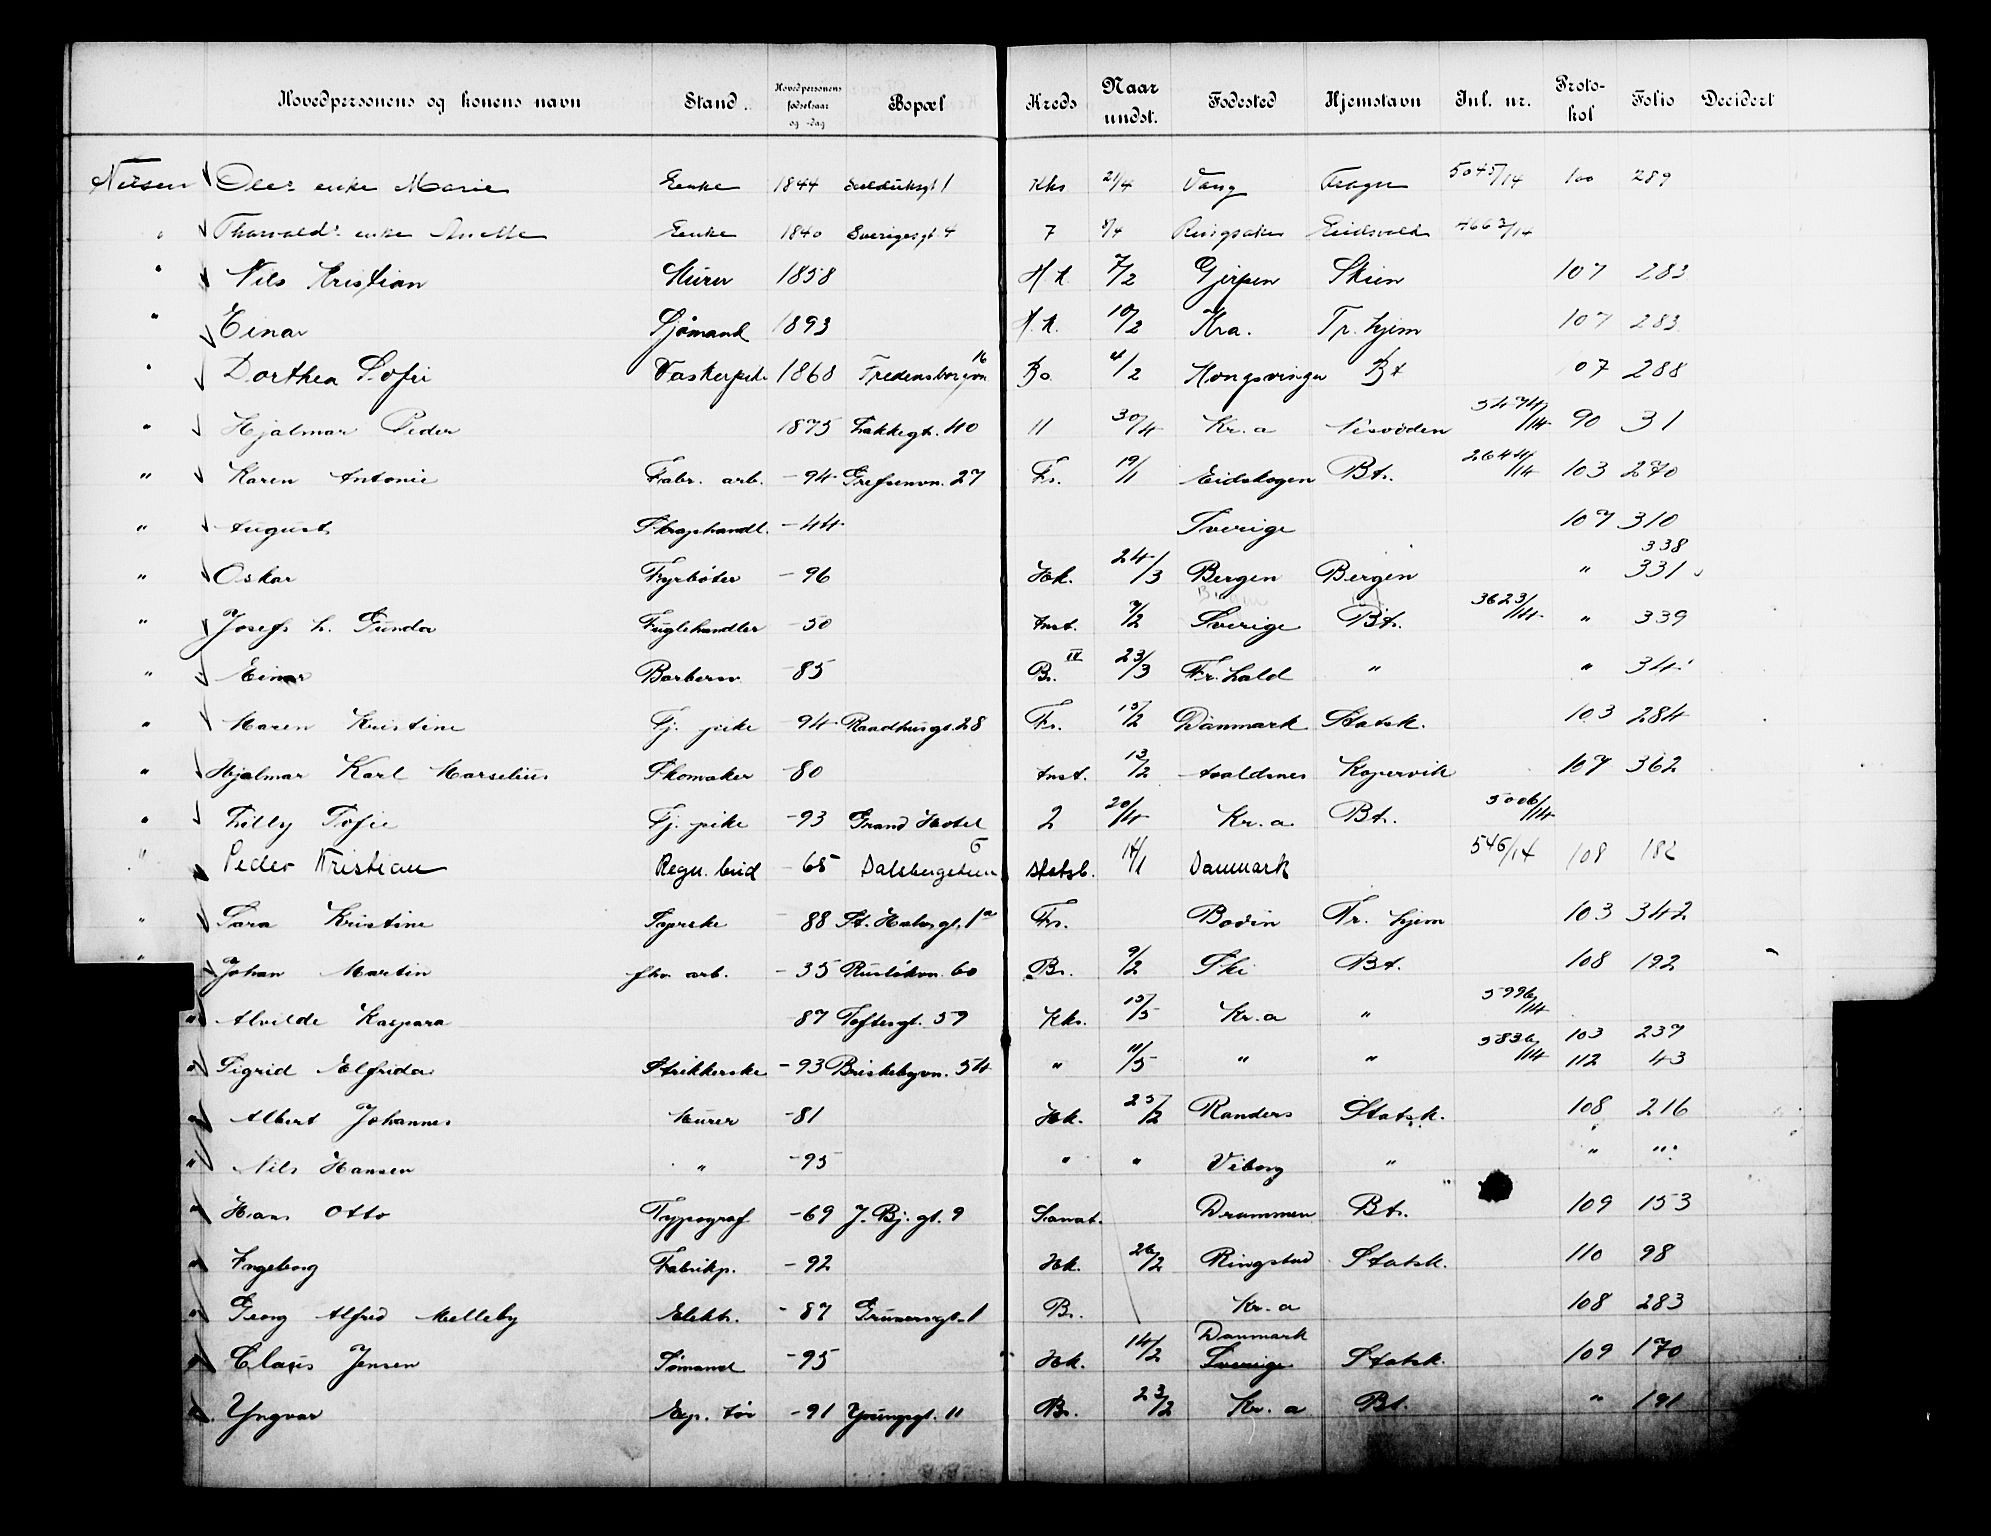 Hovedpersonens og konens navn Stand. Hovedpersonens fødselsaar og -dag Bopæl Kreds Naar undst. Fødested Hjemstavn Inl. nr. Proto-kol Folio Decidert
Nilsen Oles enke Marie Enke 1844 1 Kks 21/4 Vang 5045/14 100 289
" Thorvalds enke Anette Enke 1840 Sverigesgt 4 7 8/4 Ringsaker Eidsvold 4662/14
" Nils Kristian Murer 1858 H.k. 7/2 Gjerpen Skien 107 283
" Einar Sjømand 1893 H.k. 10/2 Kra. Tr.hjem 107 283
" Dorthea Sofie Vaskerpike 1868 Fredensborgvn 16 Bo. 4/2 Kongsvinger Bt 107 288
" Hjalmar Peder 1875 Lakkegt. 40 11 30/4 Kr.a 5474/14 90 31
" Karen Antonie Fabr. arb. -94 Grefsenvn. 27 Fr. 19/1 Eidskogen Bt. 2644/14 103 270
" August Skraphandl. -44 Sverige 107 310
338
" Oskar Fyrbøter -96 Hk. 24/3 Bergen Bergen " 331
" Josefs h. Gunda Fuglehandler -50 Anst. 7/2 Sverige Bt. 3623/14 " 339
" Einar Barbersv. -85 Br. IV 23/3 Fr.hald " " 34
" Maren Kristine Tj. pike -94 Raadhusgt. 28 Fr. 15/2 Danmark Statsk. 103 284
" Hjalmar Karl Marselius Skomaker -80 Anst. 13/2 Avaldsnes Kopervik 107 362
" Lilly Sofie Tj. pike -93 Grand Hotel 2 20/4 Kr.a Bt. 5006/14
" Peder Kristian Regn. bud -65 Dalsbergstien 5 Statsb. 14/1 Danmark 546/14 108 182
" Sara Kristine Syerske -88 St. Halvs.gt. 1a Fr. Bodin Tr. hjem 103 342
" Johan Martin fhv. arb. -35 Ruseløkvn. 60 Br. 9/2 Ski Bt. 108 192
" Alvilde Kaspara -87 Toftesgt. 59 Kks. 15/5 Kr.a " 5996/14
103 237
" Sigrid Elfrida Strikkerske -93 Briskebyvn. 54 " 11/5 " " 5836/14 112 43
" Albert Johannes Murer -81 Hk. 25/2 Randers Statsk. 108 216
" Nils Hansen " -95 " " Viborg " " "
" Hans Otto Typograf -69 J. Bj. gt. 9 Sanat. Drammen Bt. 109 153
" Ingeborg Fabrikp. -92 Hk. 26/2 Ringstad Statsk. 110 98
" Georg Alfred Melleby Elektr. -87 Grünersgt. 1 B. Kr.a 108 283
" Claus Jensen Sømand -95 Hk. 14/2 Danmark Sverige Statsk. 109 170
" Yngvar Exp. tør -91 Youngsgt. 11 Br. 23/2 Kr.a Bt. " 191